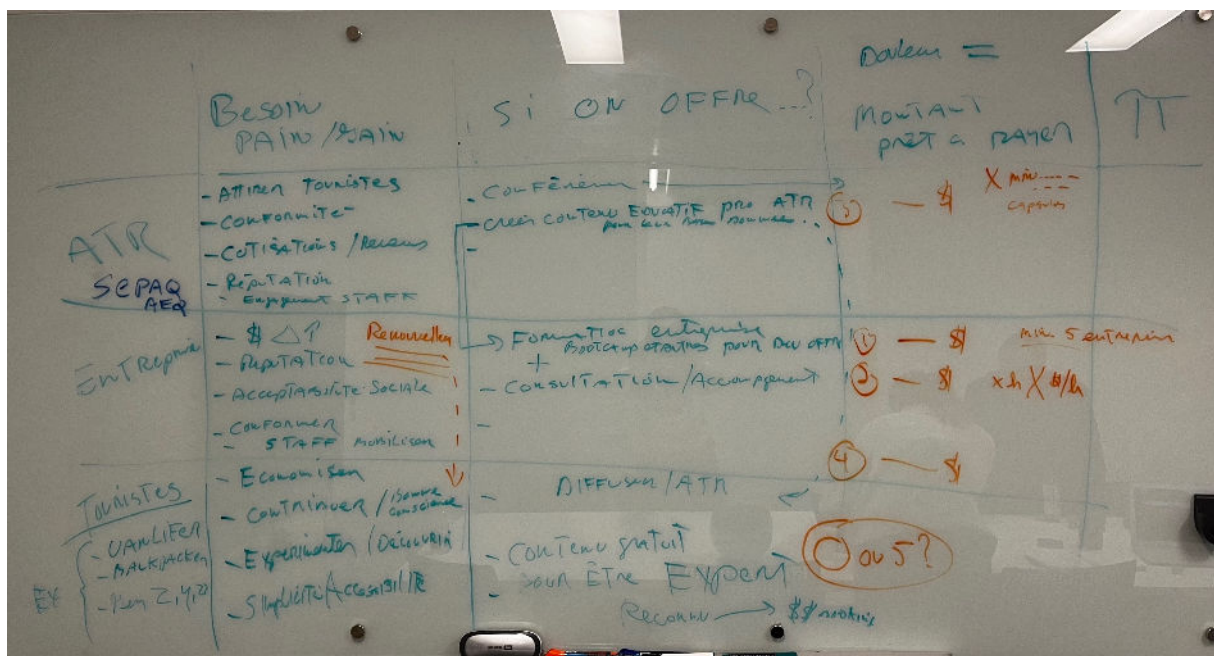 Besoin
PAIN / GAIN
Si ON OFFRE...?
Douleur =
MONTANT
prêt à payer
π
ATR
SEPAQ
AEQ
- Attirer Touristes
- Conformité
- Cotisations / Revenus
- Réputation
- Engagement STAFF
- Conférence
- Créer contenu Éducatif pro ATR
pour leur
-
③ — $
X min
capsules
Entreprise
- $ △ ?
Renouveller
- Réputation
- Acceptabilité Sociale
- Conformer
- STAFF mobiliser
Formation entreprise
Bootcamp pour Dev offre
+
- Consultation / Accompagnement
-
① — $
min. 5 entreprises
② — $
x h X $/h
④ — $
Touristes
Ex
- VANLIFER
- BACKPACKER
- Gen Z, Y,
- Economiser
- Contribuer / Bonne conscience
- Expérimenter / Découvrir
- Simplicité / Accessibilité
- DIFFUSER / ATR
- Contenu gratuit
pour Être Expert
-
Reconnu → $$
0 ou 5 ?